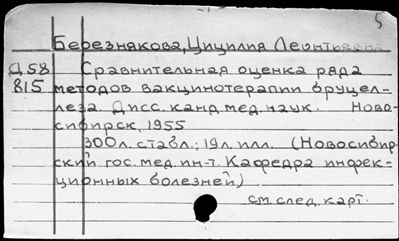 5
Березнякова, Цицилия Леонтьевна
Д58 Сравнительная оценка ряда
815 методов вакцинотерапии бруцел-
леза. Дисс. канд. мед. наук. Ново-
сибирск, 1955
300л. с табл.; 19л. илл. (Новосибир-
ский гос. мед. ин-т. Кафедра инфек-
ционных болезней)
см. след. карт.